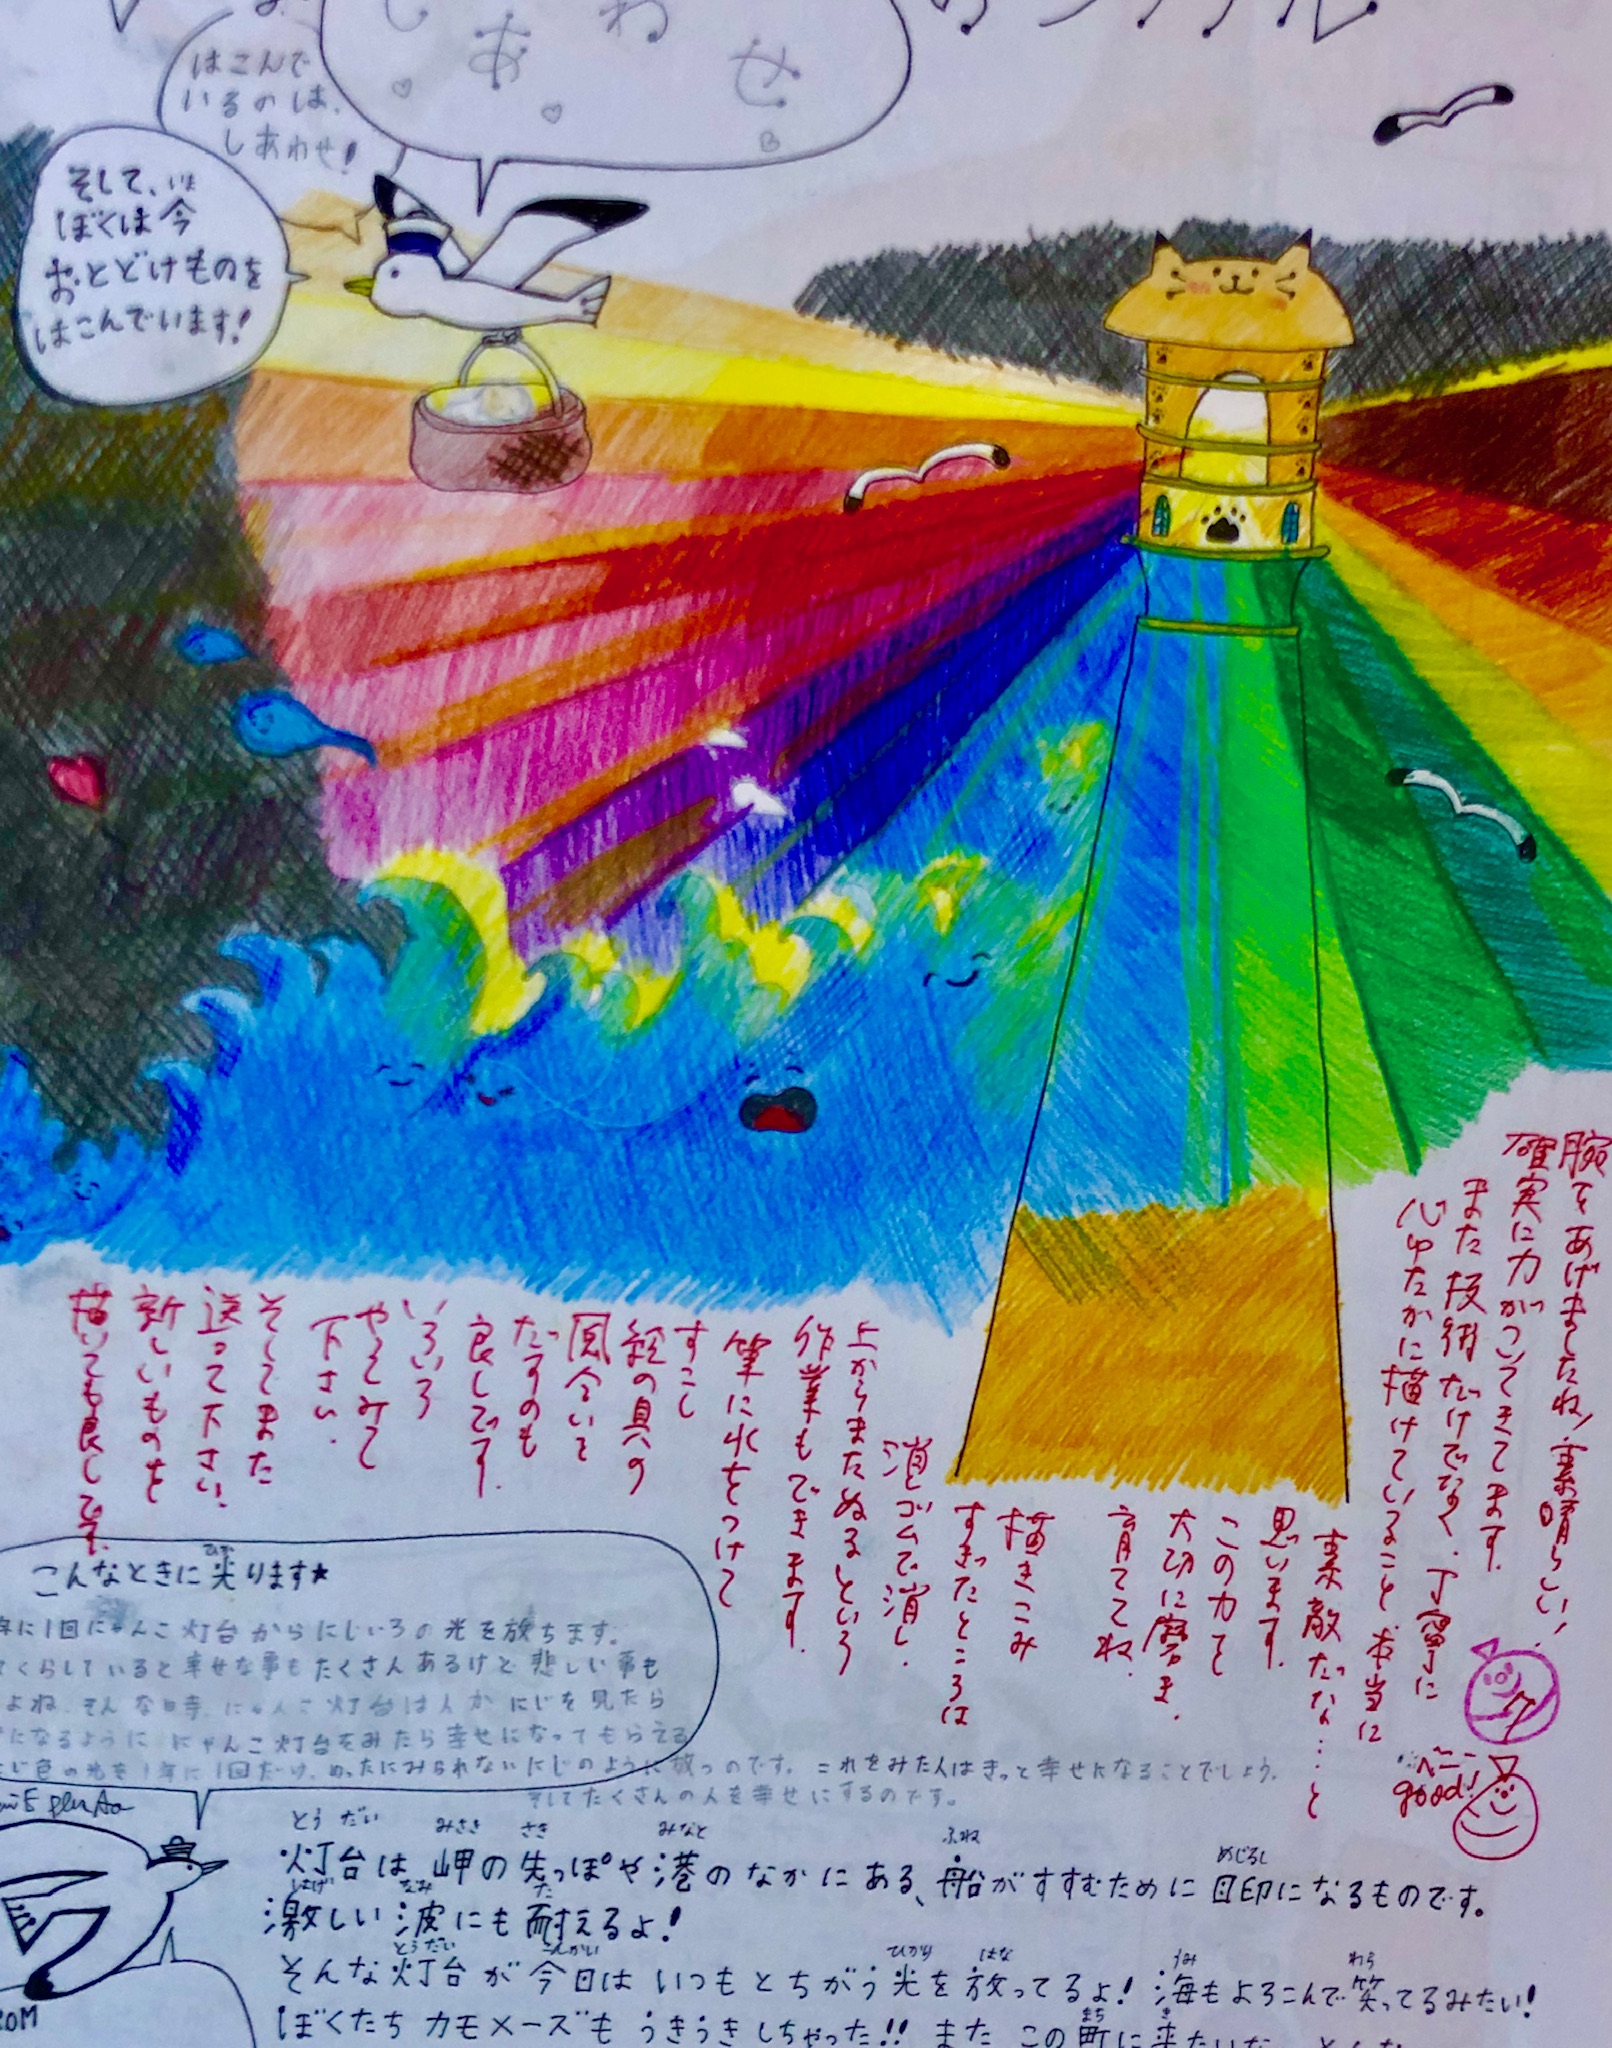 しあわせ
はこんで
いるのは、
しあわせ!
そして、いま
ぼくは今
おとどけものを
はこんでいます!
腕をあげましたね!素晴らしい!
確実に力がついてきてます。
また技術だけでなく、丁寧に
心ゆたかに描けていること、本当に
素敵だな…と
思います。
この力を
大切に磨き、
育ててね。
描きこみ
すぎたところは
消しゴムで消し、
上からまたぬるという
作業もできます。
筆に水をつけて
すこし
絵の具への
風合いを
だすのも
良しです。
いろいろ
やってみて
下さい。
そしてまた
送って下さい。
新しいものを
描いても良しです。
good!
ひか
こんなときに光ります★
年に1回にゃんこ灯台からにじいろの光を放ちます。
くらしていると幸せな事もたくさんあるけど悲しい事も
よね。そんな時、にゃんこ灯台は人がにじを見たら
になるように、にゃんこ灯台をみたら幸せになってもらえる
色の光を1年に1回だけ、めったにみられないにじのように放つのです。これをみた人はきっと幸せになることでしょう。
そしてたくさんの人を幸せにするのです。
とうだい みさき さき みなと ふね めじるし
灯台は岬の先っぽや港のなかにある、船がすすむために目印になるものです。
はげ なみ た
激しい波にも耐えるよ!
とうだい こんかい ひかり はな うみ わら
そんな灯台が今日はいつもとちがう光を放ってるよ!海もよろこんで笑ってるみたい!
まち き
ぼくたちカモメーズもうきうきしちゃった!!またこの町に来たいな
ROM